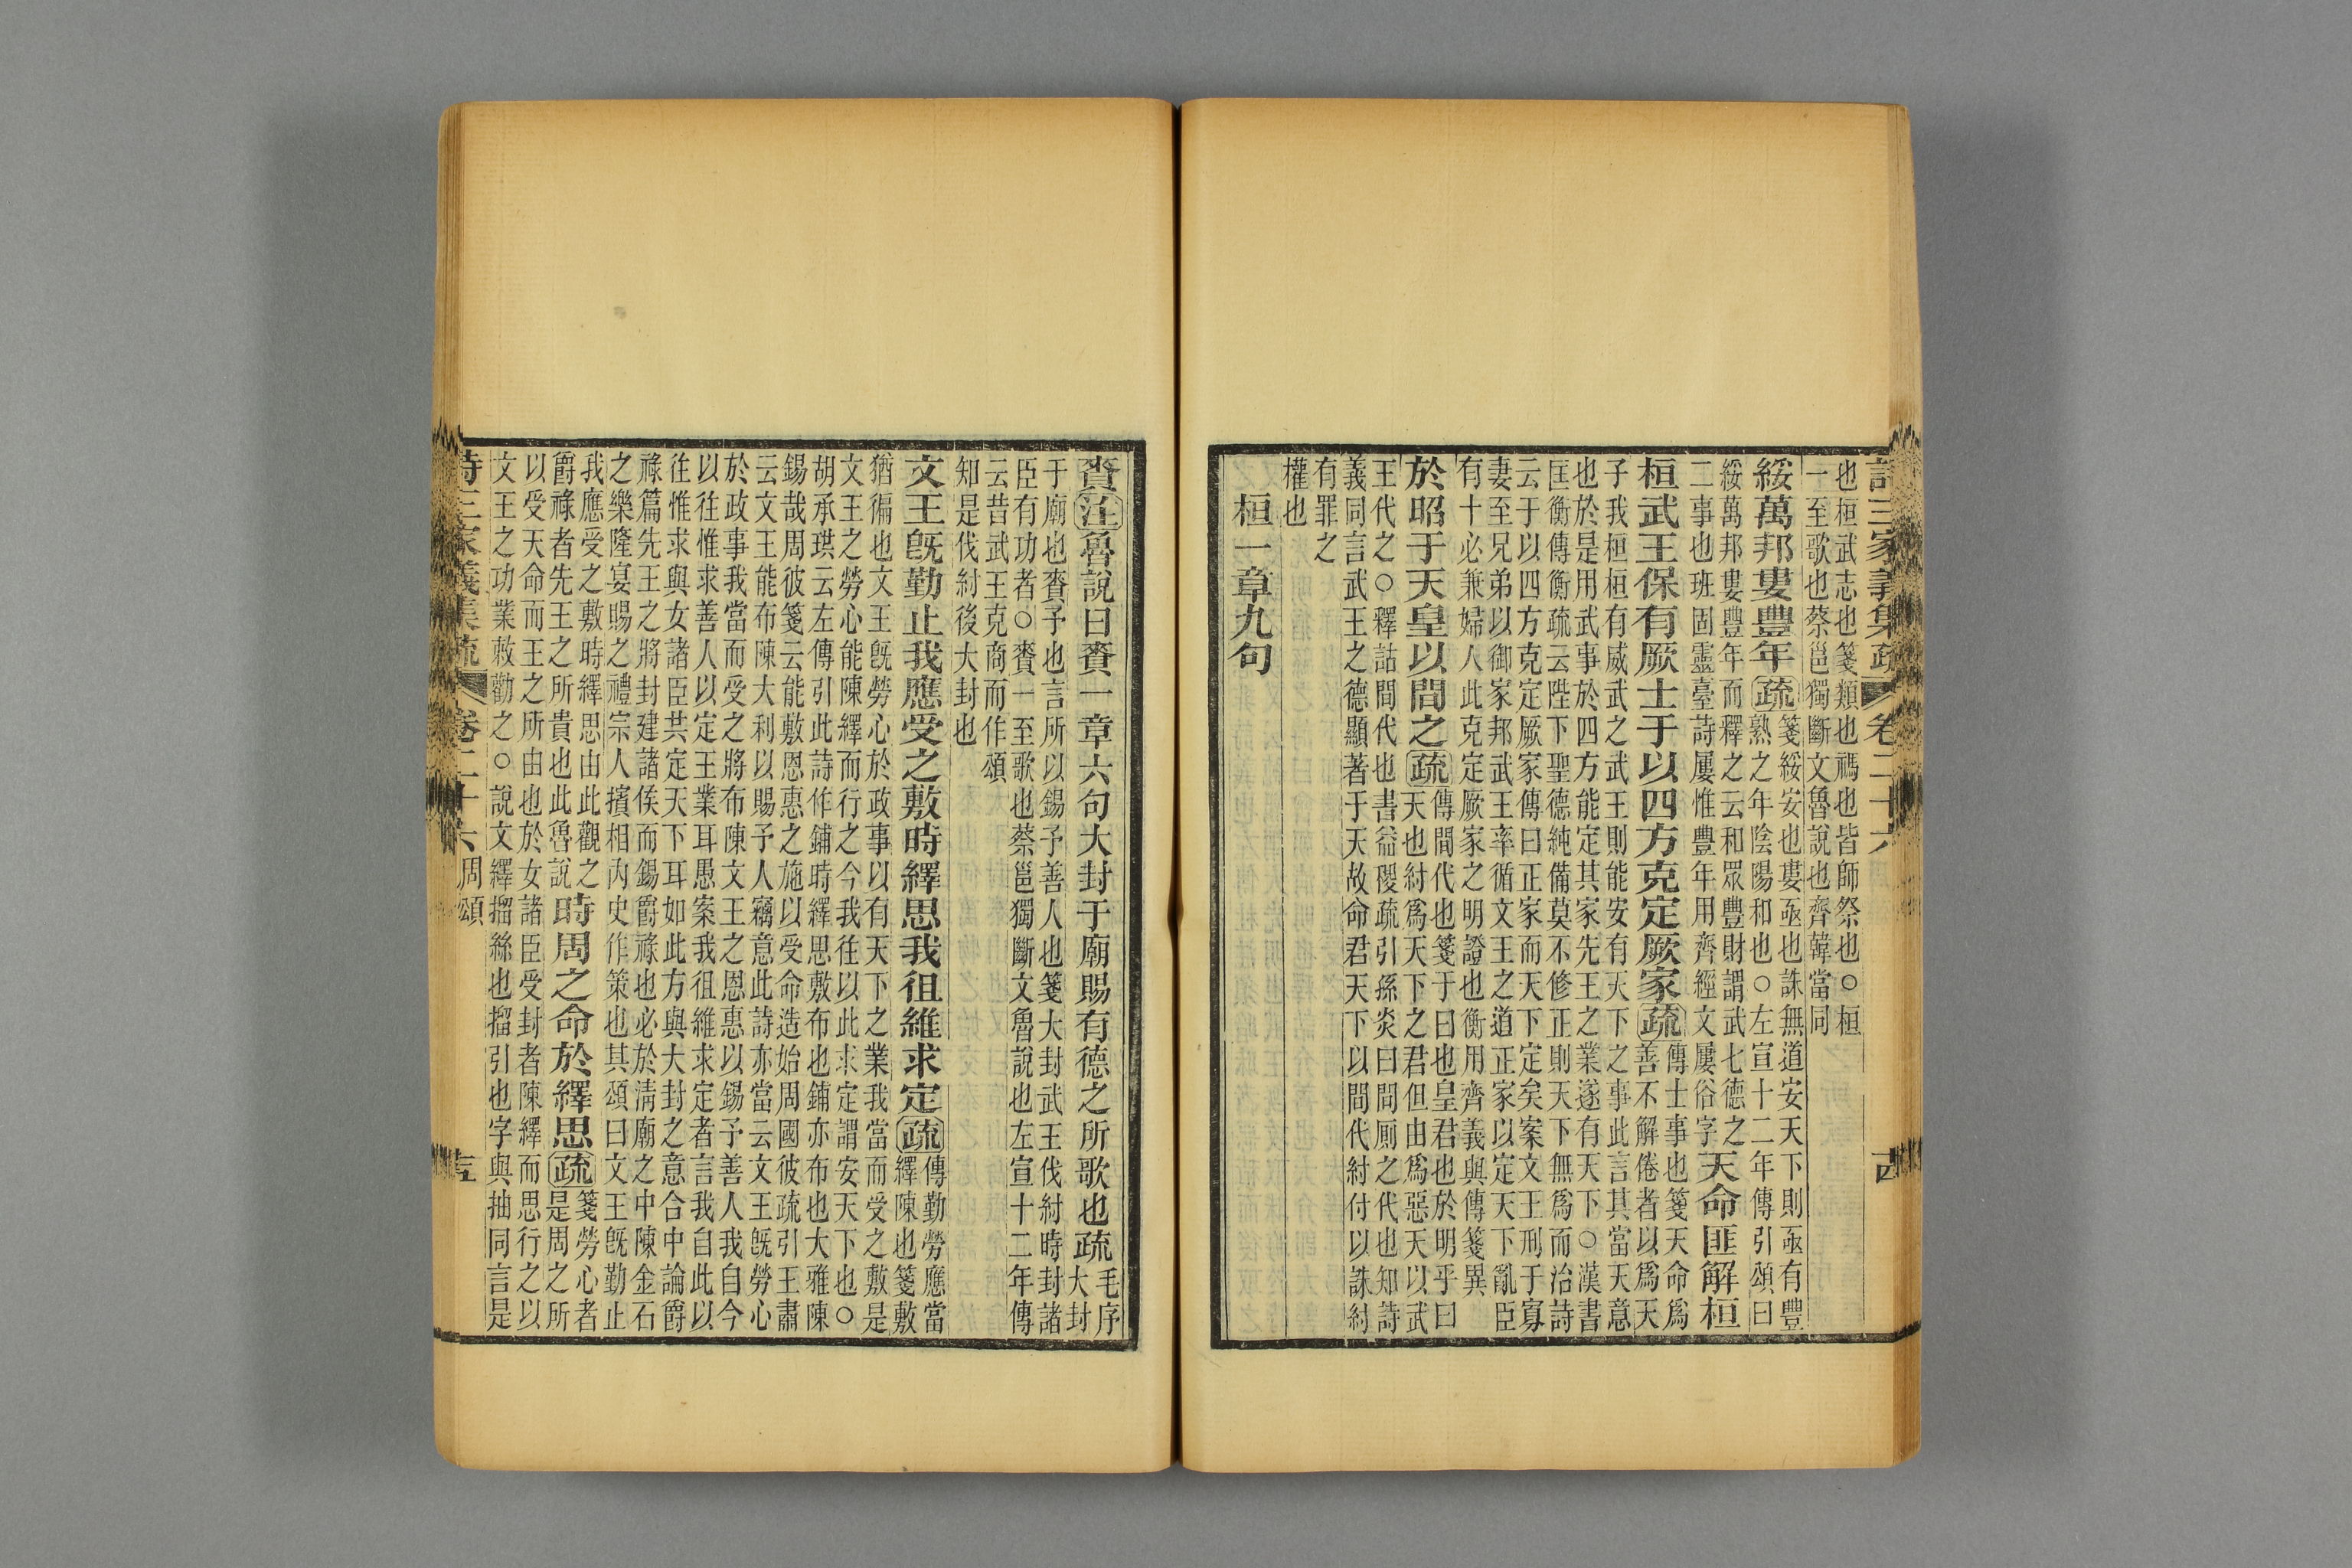 詩三家義集疏 卷二十六
也桓武志也箋類也禡也皆師祭也○桓
一至歌也蔡邕獨斷文魯說也齊韓當同
綏萬邦婁豐年疏箋綏安也婁亟也誅無道安天下則亟有豐
熟之年陰陽和也○左宣十二年傳引頌曰
綏萬邦婁豐年而釋之云和眾豐財謂武七德之
二事也班固靈臺詩屢惟豐年用齊經文屢俗字天命匪解桓
桓武王保有厥士于以四方克定厥家疏傳士事也箋天命爲
善不解倦者以爲天
子我桓桓有威武之武王則能安有天下之事此言其當天意
也於是用武事於四方能定其家先王之業遂有天下○漢書
匡衡傳衡疏云陛下聖德純備莫不修正則天下無爲而治詩
云于以四方克定厥家傳曰正家而天下定矣案文王刑于寡
妻至兄弟以御家邦武王率循文王之道正家以定天下亂臣
有十必兼婦人此克定厥家之明證也衡用齊義與傳箋異
於昭于天皇以間之疏傳間代也箋于曰也皇君也於明乎曰
天也紂爲天下之君但由爲惡天以武
王代之○釋詁間代也書益稷疏引孫炎曰間厠之代也知詩
義同言武王之德顯著于天故命君天下以間代紂付以誅紂
有罪之
權也
桓一章九句
賚注魯說曰賚一章六句大封于廟賜有德之所歌也疏毛序
大封
于廟也賚予也言所以錫予善人也箋大封武王伐紂時封諸
臣有功者○賚一至歌也蔡邕獨斷文魯說也左宣十二年傳
云昔武王克商而作頌
知是伐紂後大封也
文王旣勤止我應受之敷時繹思我徂維求定疏傳勤勞應當
繹陳也箋敷
猶徧也文王旣勞心於政事以有天下之業我當而受之敷是
文王之勞心能陳繹而行之今我往以此求定謂安天下也○
胡承珙云左傳引此詩作鋪時繹思敷布也鋪亦布也大雅陳
錫哉周彼箋云能敷恩惠之施以受命造始周國彼疏引王肅
云文王能布陳大利以賜予人竊意此詩亦當云文王旣勞心
於政事我當而受之將布陳文王之恩惠以錫予善人我自今
以往惟求善人以定王業耳愚案我徂維求定者言我自此以
往惟求與女諸臣共定天下耳如此方與大封之意合中論爵
祿篇先王之將封建諸侯而錫爵祿也必於淸廟之中陳金石
之樂隆宴賜之禮宗人擯相內史作策也其頌曰文王旣勤止
我應受之敷時繹思由此觀之
爵祿者先王之所貴也此魯說時周之命於繹思疏箋勞心者
是周之所
以受天命而王之所由也於女諸臣受封者陳繹而思行之以
文王之功業敕勸之○說文繹搊絲也搊引也字與抽同言是
詩三家義集疏 卷二十六 周頌